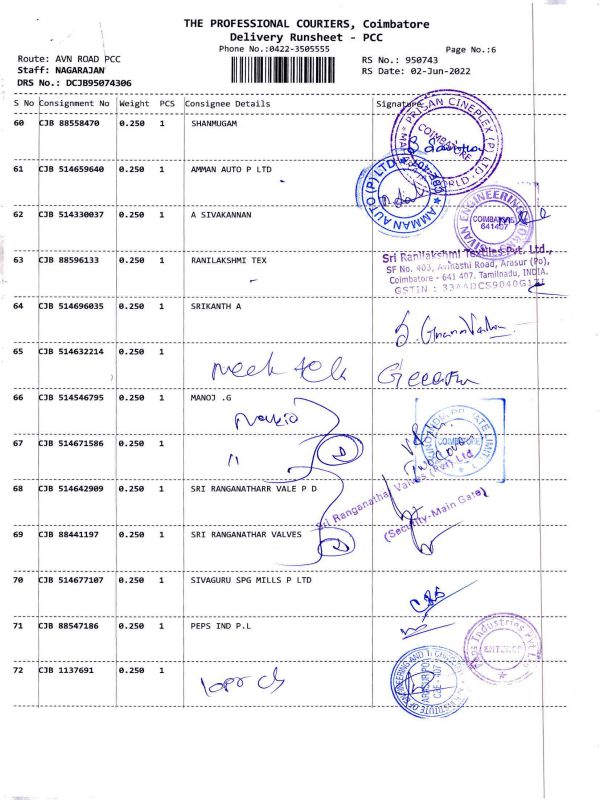 THE PROFESSIONAL COURIERS, Coimbatore
Delivery Runsheet - PCC
Phone No.:0422-3505555
Page No.:6
Route: AVN ROAD PCC
RS No.: 950743
Staff: NAGARAJAN
RS Date: 02-Jun-2022
DRS No.: DCJB95074306
S No Consignment No Weight PCS Consignee Details Signature
60 CJB 88558470 0.250 1 SHANMUGAM
PRISAN CINEPLEX (P) LTD
COIMBATORE
61 CJB 514659640 0.250 1 AMMAN AUTO P LTD
AMMAN AUTO (P) LTD
62 CJB 514330037 0.250 1 A SIVAKANNAN
ENGINEERING
COIMBATORE
641407
63 CJB 88596133 0.250 1 RANILAKSHMI TEX
Sri Ranilakshmi Textiles Pvt. Ltd.,
SF No. 403, Avinashi Road, Arasur (Po),
Coimbatore - 641 407, Tamilnadu, INDIA.
GSTIN :
64 CJB 514696035 0.250 1 SRIKANTH A
65 CJB 514632214 0.250 1
66 CJB 514546795 1 MANOJ .G
COIMBATORE
67 CJB 514671586 0.250 1
68 CJB 514642909 0.250 1 SRI RANGANATHARR VALE P D
Sri Ranganathar Valves (Pvt) Ltd
(Security-Main Gate)
69 CJB 88441197 0.250 1 SRI RANGANATHAR VALVES
70 CJB 514677107 0.250 1 SIVAGURU SPG MILLS P LTD
71 CJB 88547186 0.250 1 PEPS IND P.L
Peps Industries Pvt Ltd
72 CJB 1137691 0.250 1
INSTITUTE OF ENGINEERING AND
ARASUR POST
CBE - 407